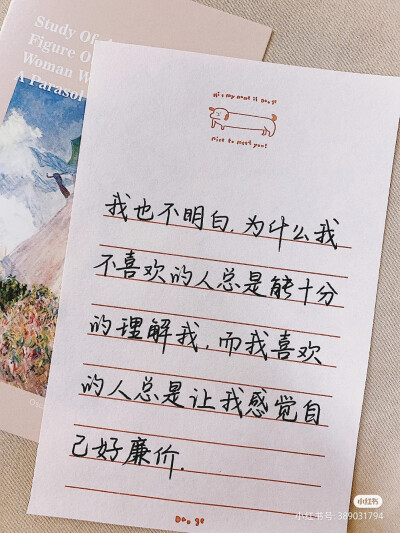 Study Of A
Figure O
Woman W
A Parasol
Hi ~ my name is Dao ge
nice to meet you!
我也不明白,为什么我
不喜欢的人总是能十分
的理解我,而我喜欢
的人总是让我感觉自
己好廉价.
Dao ge
小红书
小红书号:389031794